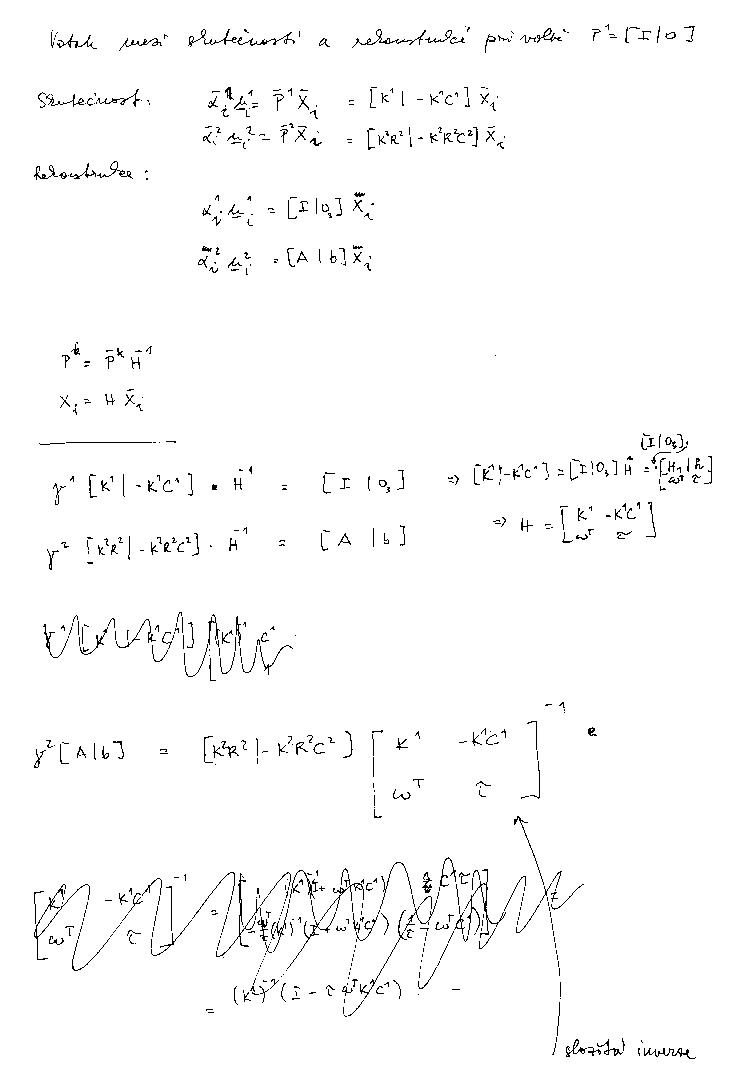 Vztah mezi skutečností a rekonstrukcí při volbě P¹ = [I|0]
Skutečnost: ᾱᵢ¹ uᵢ¹ = P̄¹ X̄ᵢ = [K¹ | -K¹C¹] X̄ᵢ
ᾱᵢ² uᵢ² = P̄² X̄ᵢ = [K²R² | -K²R²C²] X̄ᵢ
Rekonstrukce:
αᵢ¹ uᵢ¹ = [I | 0₃] Xᵢ
αᵢ² uᵢ² = [A | b] Xᵢ
Pᵏ = P̄ᵏ H⁻¹
Xᵢ = H X̄ᵢ
γ¹ [K¹ | -K¹C¹] · H⁻¹ = [I | 0₃] ⇒ [K¹ | -K¹C¹] = [I | 0₃] H = [I | 0₃] [H₁ | h ; ωᵀ | τ]
⇒ H = [K¹ -K¹C¹ ; ωᵀ τ]
γ² [K²R² | -K²R²C²] · H⁻¹ = [A | b]
γ² [A | b] = [K²R² | -K²R²C²] [K¹ -K¹C¹ ; ωᵀ τ]⁻¹
[K¹ -K¹C¹ ; ωᵀ τ]⁻¹ =
= (K¹)⁻¹ (I - τ ωᵀK¹C¹) -
složitá inverse